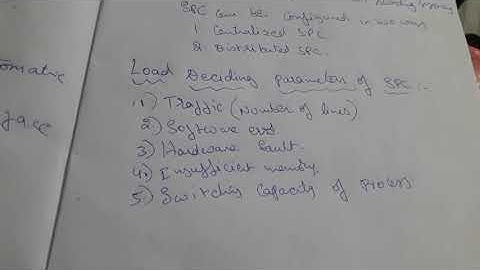 SPC can be configured in two ways
1. Centralised SPC
2. Distributed SPC.
Load Deciding parameters of SPC :-
1) Traffic (Number of lines)
2) Software
3) Hardware fault.
4) Insufficient memory.
5) Switching Capacity of Process